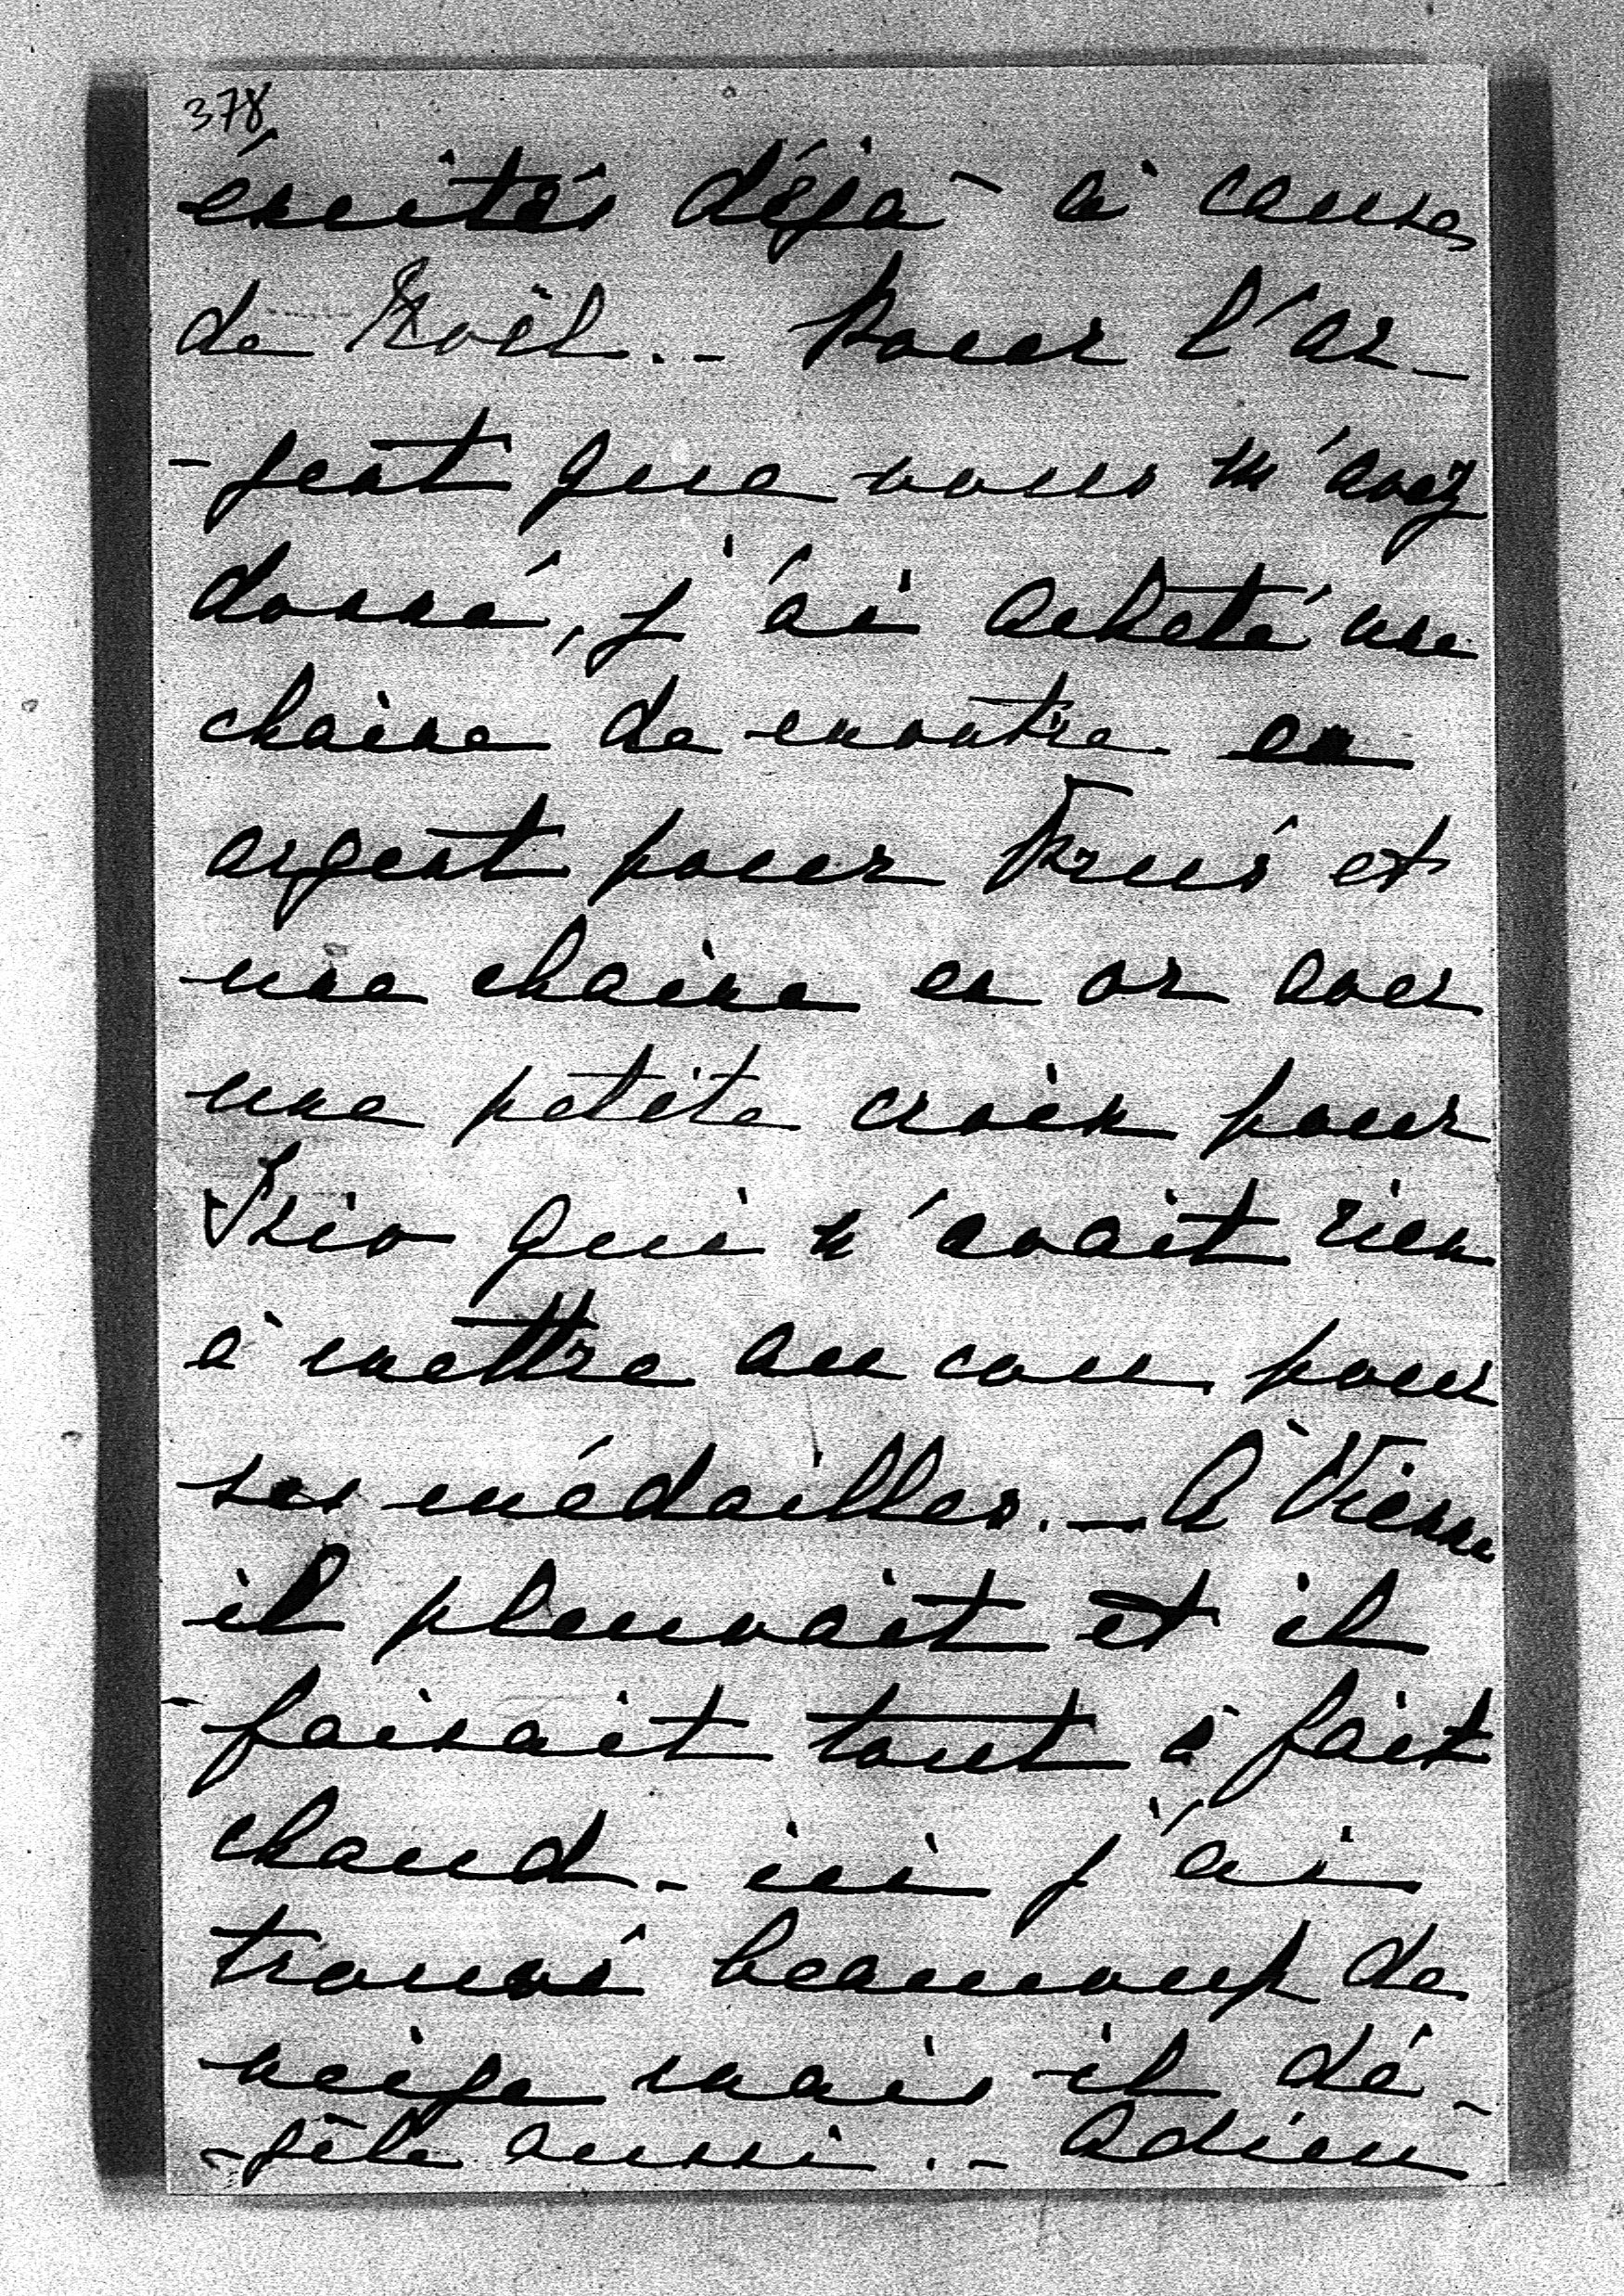 378
éxcités déjà à cause
de Noël. - Pour l'ar-
-gent que vous m'avez
donné, j'ai acheté une
chaine de montre en
argent pour et
une chaine en or avec
une petite croix pour
qui n'avait rien
à mettre au cou pour
ses médailles. - A Vienne
il pleuvait et il
faisait tout à fait
chaud - ici j'ai
trouvé beaucoup de
neige mais il dé-
-gèle aussi. - Adieu